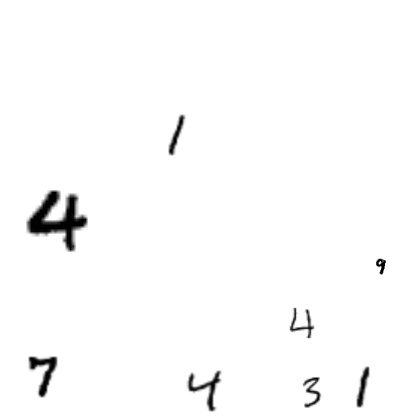 1
4
9
4
7 4 3 1